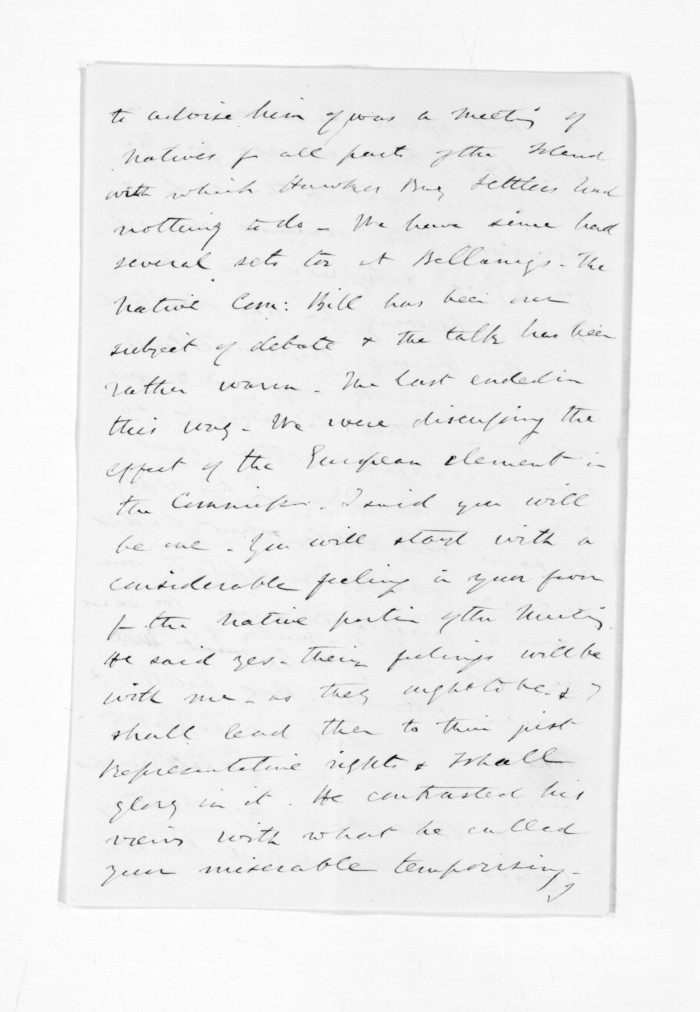 to advise him of was a Meeting of
Natives fr all parts of the Island
with which Hawkes Bay Settlers had
nothing to do - We have since had
several sets too at Bellamys - The
Native Com: Bill has been our
subject of debate & the talk has been
rather warm - The last ended in
this way - We were discussing the
effect of the European element in
the Commissn. I said you will
be one - You will start with a
considerable feeling in your favor
fr the Native portion of the Meeting.
He said yes - their feelings will be
with me - as they ought to be - & I
shall lead them to their just
Representative rights & I shall
glory in it. He contrasted his
views with what he called
your miserable temporising -